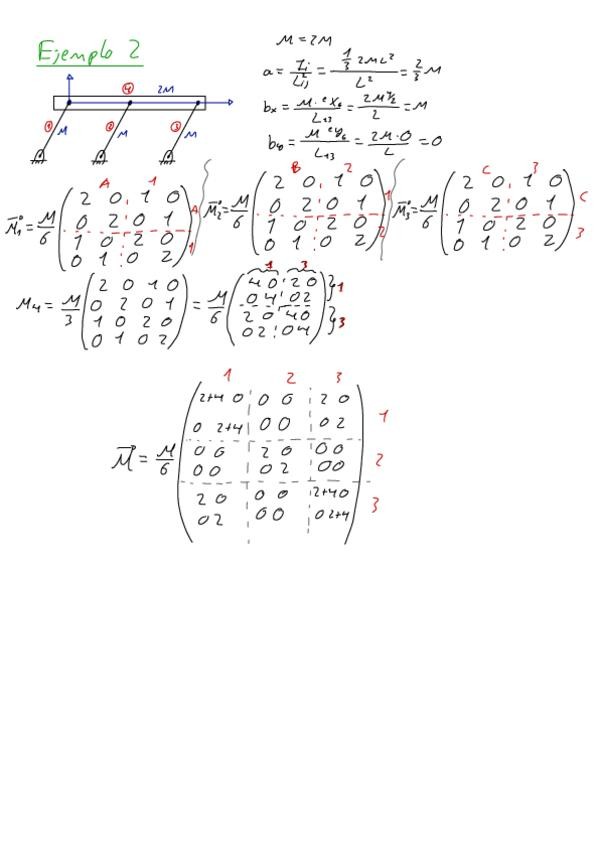 Ejemplo 2
④ 2M
① M ② M ③ M
M = 2M
a = Ii/Lij² = (1/3 2ML²)/L² = 2/3 M
bx = M·ᵉxG/L13 = (2M L/2)/2 = M
by = M ᵉyG/L13 = 2M·0/L = 0
A 1
M̄₁° = M/6 (2 0 1 0
0 2 0 1
1 0 2 0
0 1 0 2) A 1
B 2
M̄₂° = M/6 (2 0 1 0
0 2 0 1
1 0 2 0
0 1 0 2) 1 2
C 3
M̄₃° = M/6 (2 0 1 0
0 2 0 1
1 0 2 0
0 1 0 2) C 3
M4 = M/3 (2 0 1 0
0 2 0 1
1 0 2 0
0 1 0 2)
1 3
= M/6 (4 0 2 0
0 4 0 2
2 0 4 0
0 2 0 4) }1 }3
1 2 3
M̄° = M/6 (2+4 0 0 0 2 0
0 2+4 0 0 0 2 1
0 0 2 0 0 0
0 0 0 2 0 0 2
2 0 0 0 2+4 0
0 2 0 0 0 2+4) 3